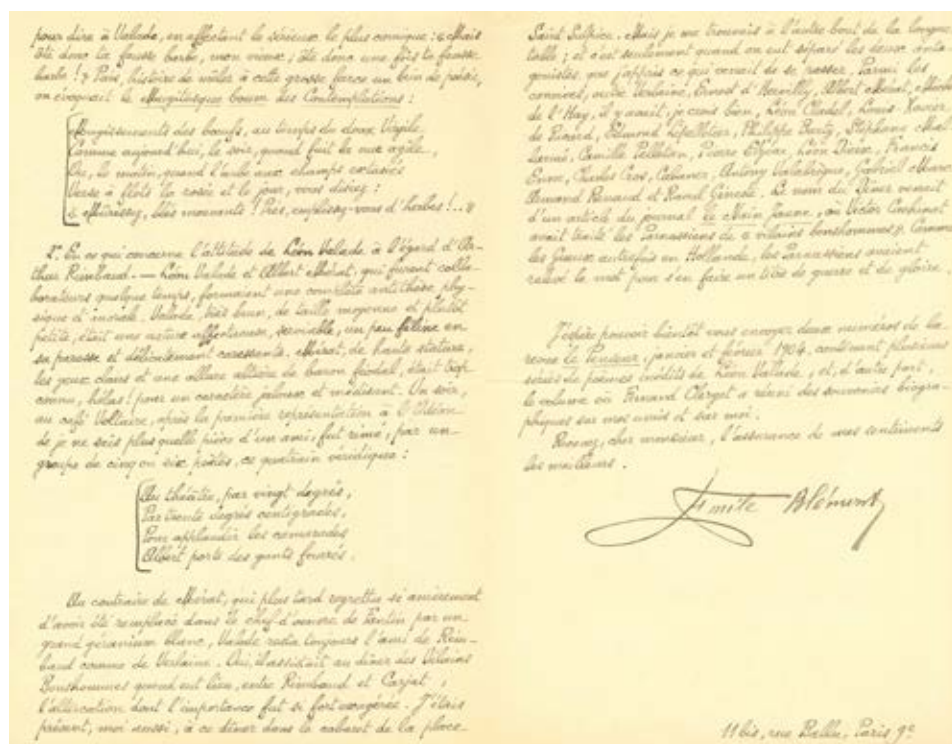 pour dire à Valade, en affectant le sérieux le plus comique : « Mais
ôte donc ta fausse barbe, mon vieux ; ôte donc une fois ta fausse
barbe ! » Puis, histoire de mêler à cette grosse farce un brin de poésie,
on évoquait le Mugitusque boum des Contemplations :
Mugissements des bœufs, au temps du doux Virgile,
Comme aujourd'hui, le soir, quand fuit la nue agile,
Ou, le matin, quand l'aube aux champs extasiés
Verse à flots la rosée et le jour, vous disiez :
« Mûrissez, blés mouvants ! Prés, emplissez-vous d'herbes !.. »
2. En ce qui concerne l'attitude de Léon Valade à l'égard d'Ar-
thur Rimbaud. — Léon Valade et Albert Mérat, qui furent colla-
borateurs quelque temps, formaient une complète antithèse phy-
sique et morale. Valade, très brun, de taille moyenne et plutôt
petite, était une nature affectueuse, sensible, un peu féline en
sa paresse et délicatement caressante. Mérat, de haute stature,
les yeux clairs et une allure altière de baron féodal, était trop
connu, hélas ! pour un caractère jaloux et médisant. Un soir,
au café Voltaire, après la première représentation à l'Odéon
de je ne sais plus quelle pièce d'un ami, fut rimé, par un
groupe de cinq ou six poètes, ce quatrain véridique :
Au théâtre, par vingt degrés,
Par trente degrés centigrades,
Pour applaudir les camarades
Albert porte des gants fourrés.
Au contraire de Mérat, qui plus tard regretta si amèrement
d'avoir été remplacé dans le chef-d'œuvre de Fantin par un
grand géranium blanc, Valade resta toujours l'ami de Rim-
baud comme de Verlaine. Oui, il assistait au dîner des Vilains
Bonshommes quand eut lieu, entre Rimbaud et Carjat,
l'altercation dont l'importance fut si fort exagérée. J'étais
présent, moi aussi, à ce dîner dans le cabaret de la place
Saint Sulpice. Mais je me trouvais à l'autre bout de la longue
table ; et c'est seulement quand on eut séparé les deux anta-
gonistes, que j'appris ce qui venait de se passer. Parmi les
convives, outre Verlaine, Ernest d'Hervilly, Albert Mérat,
de l'Hay, il y avait, je crois bien, Léon Cladel, Louis-Xavier
de Ricard, Edmond Lepelletier, Philippe Burty, Stéphane Mal-
larmé, Camille Pelletan, Pierre Elzéar, Léon Dierx, Francis
Enne, Charles Cros, Cabaner, Antony Valabrègue, Gabriel Marc,
Armand Renaud et Raoul Gineste. Le nom du dîner venait
d'un article du journal le Nain Jaune, où Victor Cochinat
avait traité les Parnassiens de « vilains bonshommes ». Comme
les Gueux autrefois en Hollande, les Parnassiens avaient
relevé le mot pour s'en faire un titre de guerre et de gloire.
J'espère pouvoir bientôt vous envoyer deux numéros de la
revue le Penseur, janvier et février 1904, contenant plusieurs
séries de poèmes inédits de Léon Valade, et, d'autre part,
le volume où Pernand Clerget a réuni des souvenirs biogra-
phiques sur mes amis et sur moi.
Recevez, cher monsieur, l'assurance de mes sentiments
les meilleurs.
Emile Blémont
11 bis, rue Ballu, Paris 9e